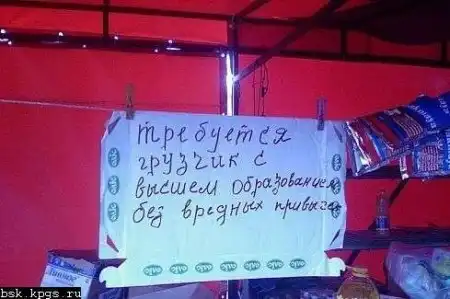 требуется
грузчик с
высшем образованием
без вредных привыч
bsk.kpgs.ru